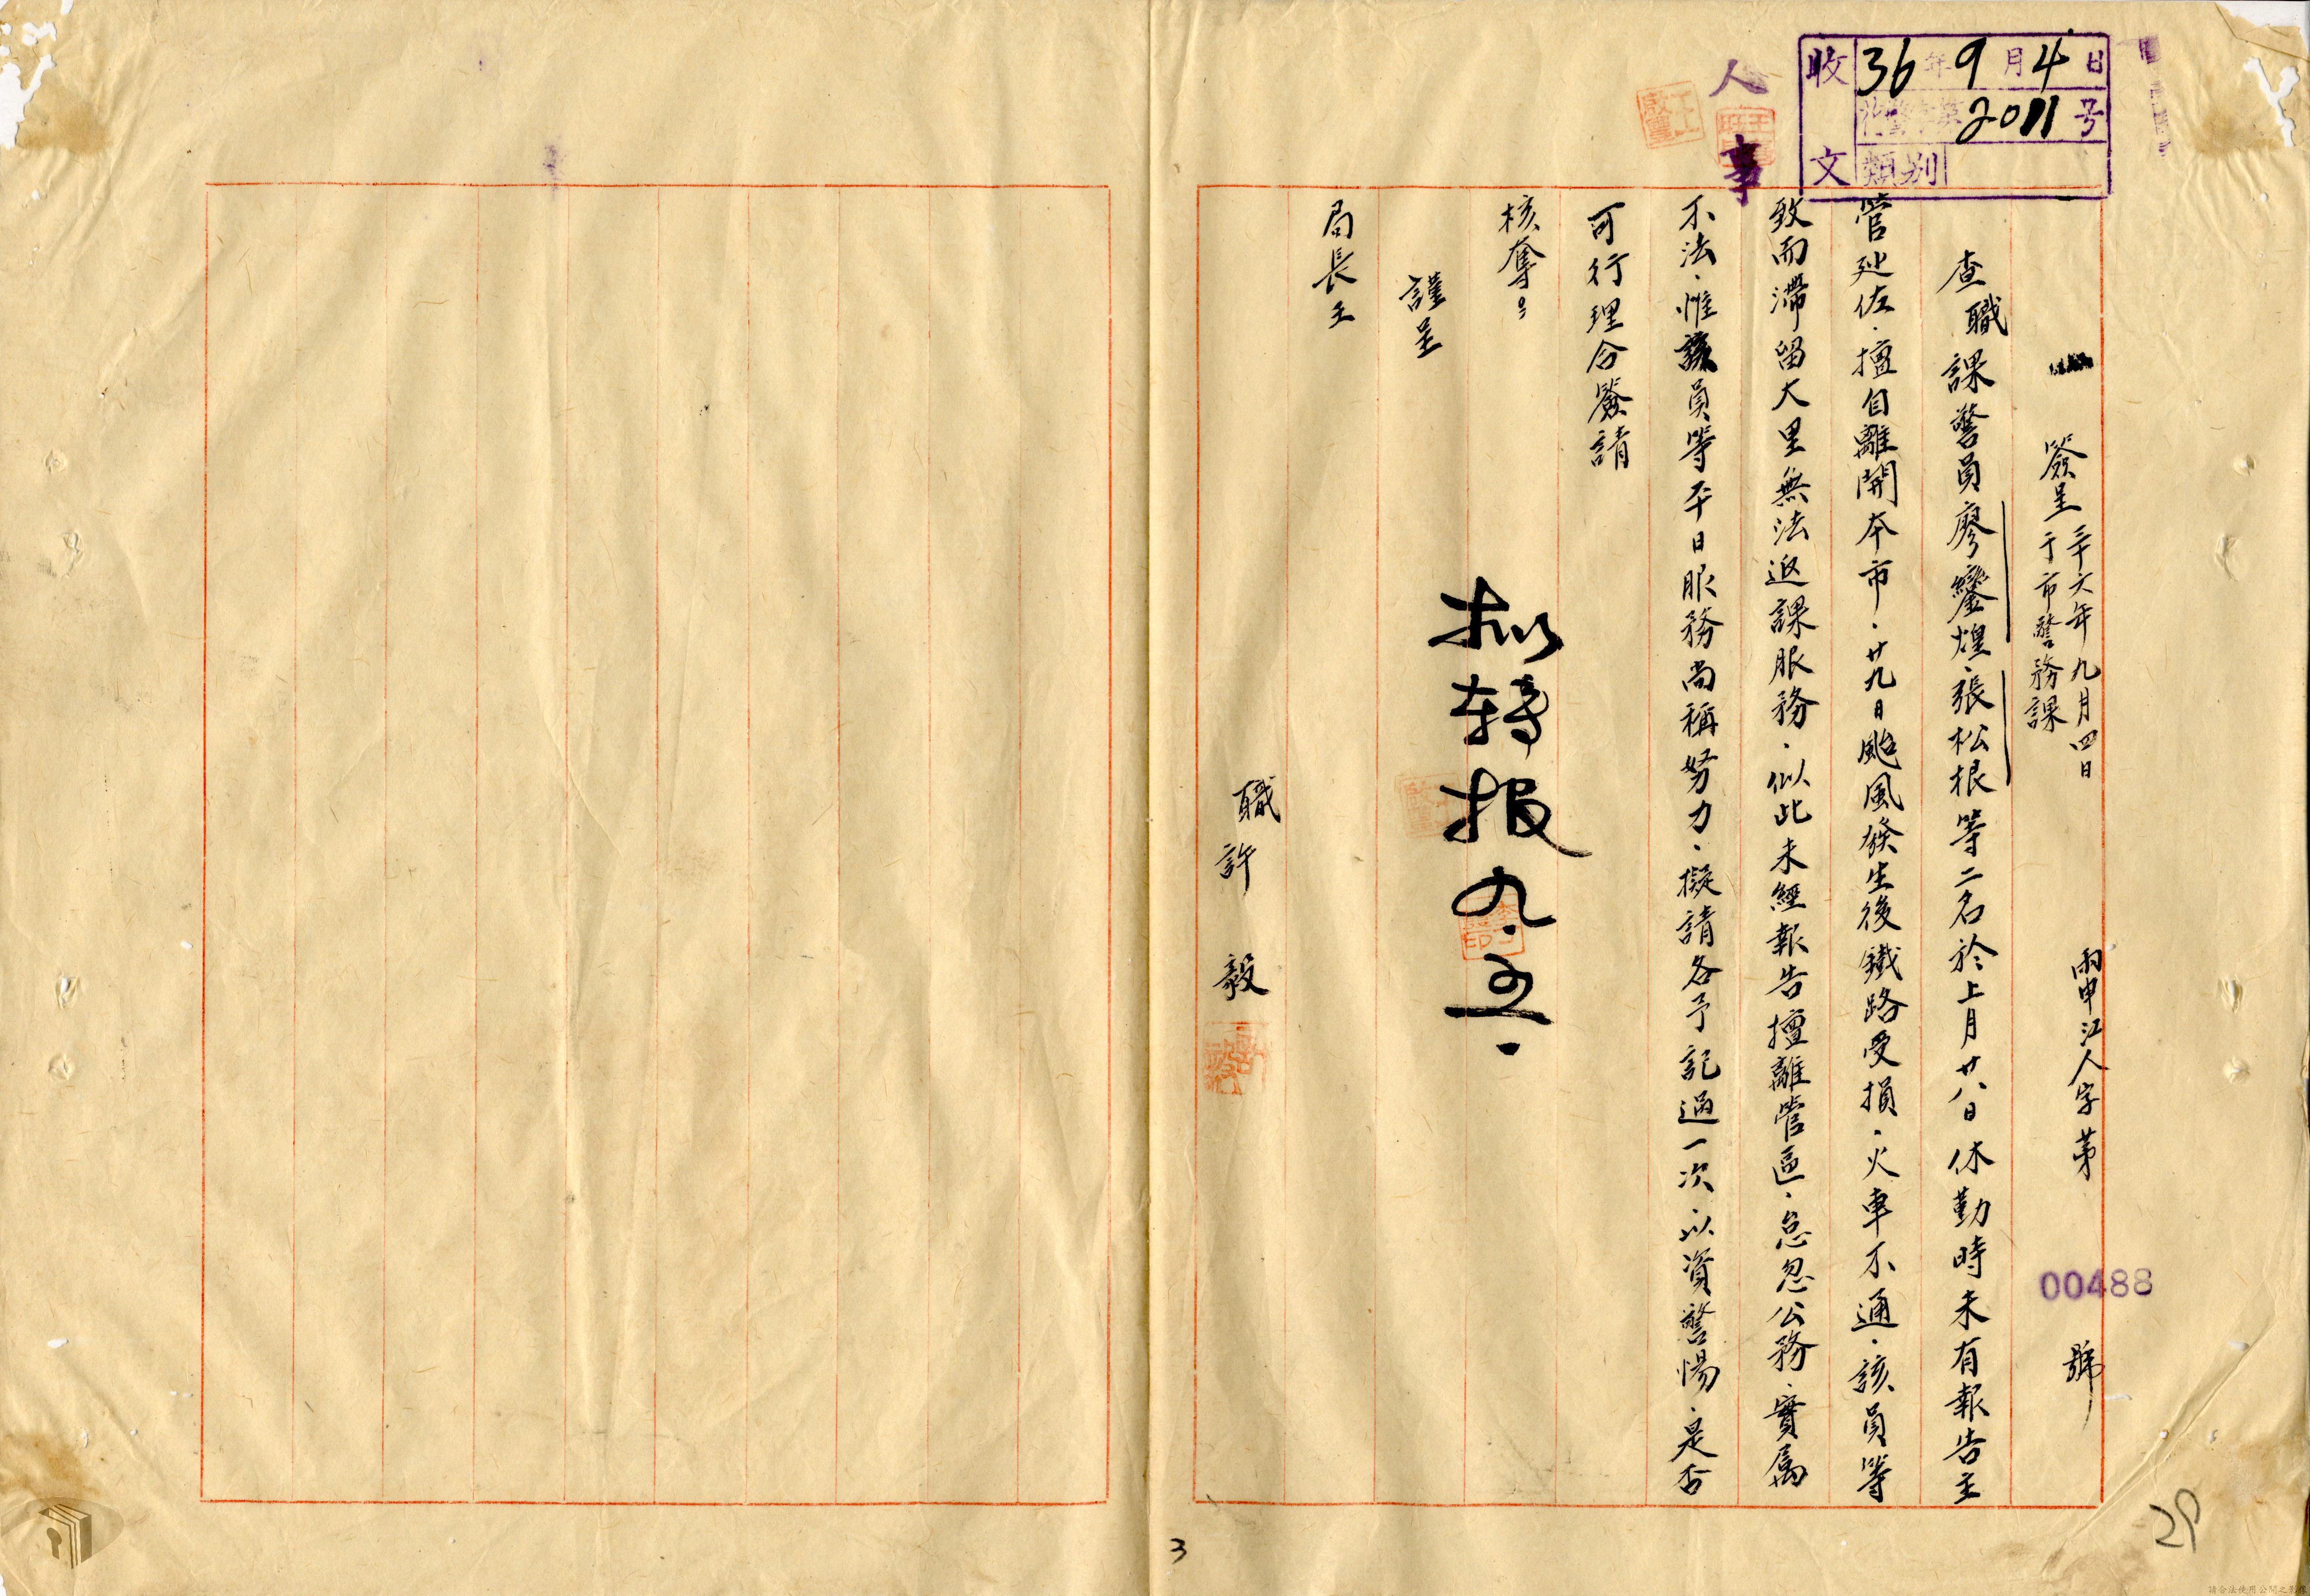 收文 36年9月4日
2011号
類别
人事
簽呈 三十六年九月四日
于市警務課
申江人字第00488號
查職課警員廖鑾煌、張松根等二名於上月廿八日休勤時未有報告主
管处佐、擅自離開本市、廿九日颱風發生後鐵路受損、火車不通、該員等
致而滯留大里無法返課服務、似此未經報告擅離管區、怠忽公務、實屬
不法、惟該員等平日服務尚稱努力、擬請各予記過一次、以資警惕、是否
可行理合簽請
核奪。
謹呈
局長王
職許毅
拟转报九.五.
3
29
請合法使用公開之影像